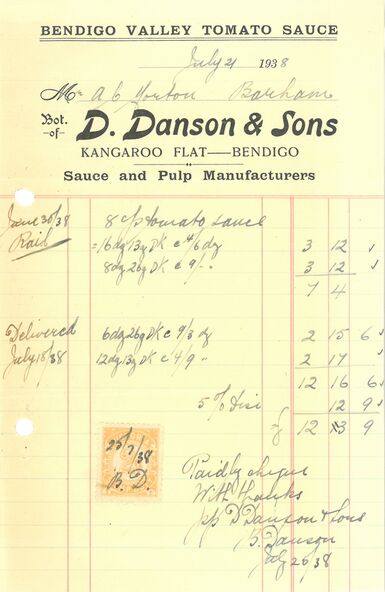 BENDIGO VALLEY TOMATO SAUCE
July 21 1938
Mr A C Norton Barham
Bot. of D. Danson & Sons
KANGAROO FLAT—BENDIGO
Sauce and Pulp Manufacturers
June 30/38 8 c/s tomato sauce
Rail = 16 dz 13g DK c 4/6 dz 3 12
8 dz 26g DK c 9/- " 3 12
7 4
Delivered 6 dz 26g DK c 9/3 dz 2 15 6
July 18/38 12 dz 13g DK c 4/9 " 2 17
12 16 6
5 % Disc 12 9
12 3 9
25/7/38
B. D.
Paid by cheque
With thanks
pp D Danson & Sons
B. Danson
July 25/38